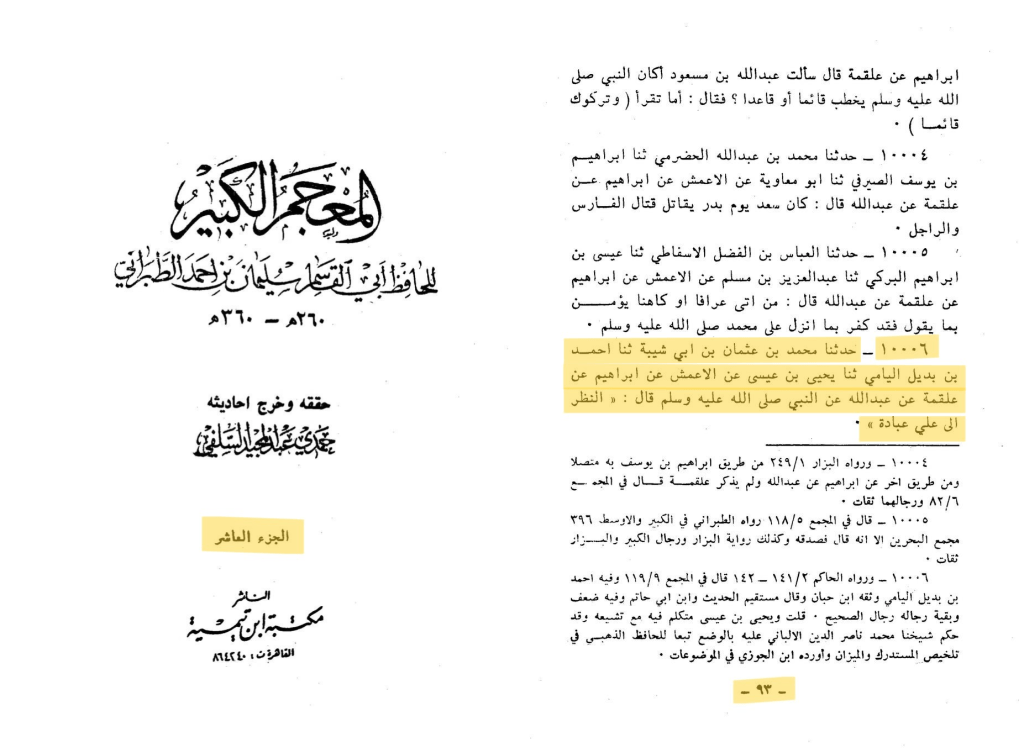 المعجم الكبير
للحافظ أبي القاسم سليمان بن احمد الطبراني
٢٦٠هـ – ٣٦٠هـ
حققه وخرج احاديثه
حمدي عبد المجيد السلفي
الجزء العاشر
الناشر
مكتبة ابن تيمية
القاهرة ت : ٨٦٤٢٤٠
ابراهيم عن علقمة قال سألت عبدالله بن مسعود أكان النبي صلى
الله عليه وسلم يخطب قائما أو قاعدا ؟ فقال : أما تقرأ ( وتركوك
قائمـا ) ٠
١٠٠٠٤ ـ حدثنا محمد بن عبدالله الحضرمي ثنا ابراهيـم
بن يوسف الصيرفي ثنا ابو معاوية عن الاعمش عن ابراهيم عـن
علقمة عن عبدالله قال : كان سعد يوم بدر يقاتل قتال الفـارس
والراجل ٠
١٠٠٠٥ ـ حدثنا العباس بن الفضل الاسفاطي ثنا عيسى بن
ابراهيم البركي ثنا عبدالعزيز بن مسلم عن الاعمش عن ابراهيم
عن علقمة عن عبدالله قال : من اتى عرافا او كاهنا يؤمـــن
بما يقول فقد كفر بما انزل على محمد صلى الله عليه وسلم ٠
١٠٠٠٦ ـ حدثنا محمد بن عثمان بن ابي شيبة ثنا احمـد
بن بديل اليامي ثنا يحيى بن عيسى عن الاعمش عن ابراهيم عن
علقمة عن عبدالله عن النبي صلى الله عليه وسلم قال : « النظر
الى علي عبادة » ٠
١٠٠٠٤ ـ ورواه البزار ٢٤٩/١ من طريق ابراهيم بن يوسف به متصلا
ومن طريق اخر عن ابراهيم عن عبدالله ولم يذكر علقمـة قـال في المجمـع
٨٢/٦ ورجالهما ثقات ٠
١٠٠٠٥ ـ قال في المجمع ١١٨/٥ رواه الطبراني في الكبير والاوسط ٣٩٦
مجمع البحرين الا انه قال فصدقه وكذلك رواية البزار ورجال الكبير والبـزار
ثقات ٠
١٠٠٠٦ ـ ورواه الحاكم ١٤١/٢ ـ ١٤٢ قال في المجمع ١١٩/٩ وفيه احمد
بن بديل اليامي وثقه ابن حبان وقال مستقيم الحديث وابن ابي حاتم وفيه ضعف
وبقية رجاله رجال الصحيح ٠ قلت ويحيى بن عيسى متكلم فيه مع تشيعه وقد
حكم شيخنا محمد ناصر الدين الالباني عليه بالوضع تبعا للحافظ الذهبـي في
تلخيص المستدرك والميزان وأورده ابن الجوزي في الموضوعات ٠
ـ ٩٣ ـ